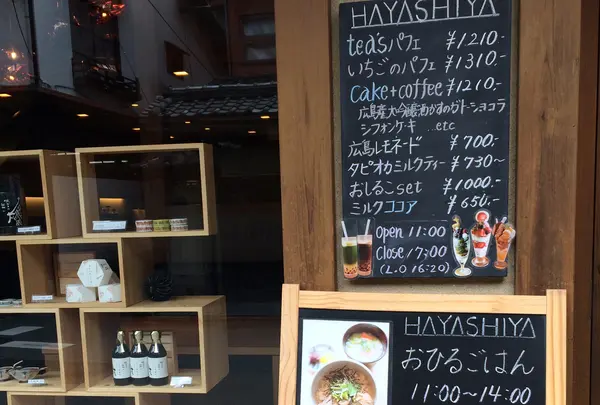 HAYASHIYA
tea'sパフェ ¥1210-
いちごのパフェ ¥1310-
cake+coffee ¥1210-
広島産大吟醸酒かすのガトーショコラ
シフォンケーキ ...etc
広島レモネード ¥700-
タピオカミルクティー ¥730~
おしるこset ¥1000-
ミルクココア ¥650-
Open 11:00
Close 17:00
(L.O 16:20)
HAYASHIYA
おひるごはん
11:00~14:00